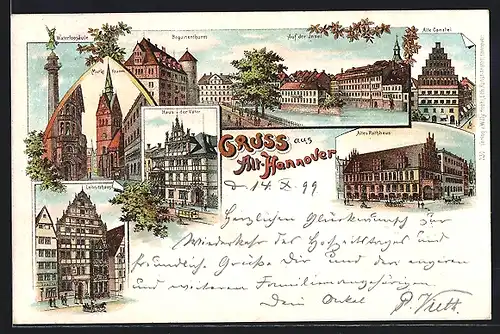 Waterloosäule
Beguinenthurm
Auf der Insel
Alte Canzlei
Markt
Haus der Väter
GRUSS aus
Alt-Hannover
Altes Rathhaus
Leibnizhaus
d 14. X. 99
Herzlichen Glückwunsch zur
Wiederkehr des Hochzeitstages und
freundl. Grüße Dir und den engeren
und weiteren Familienangehörigen.
Dein Onkel